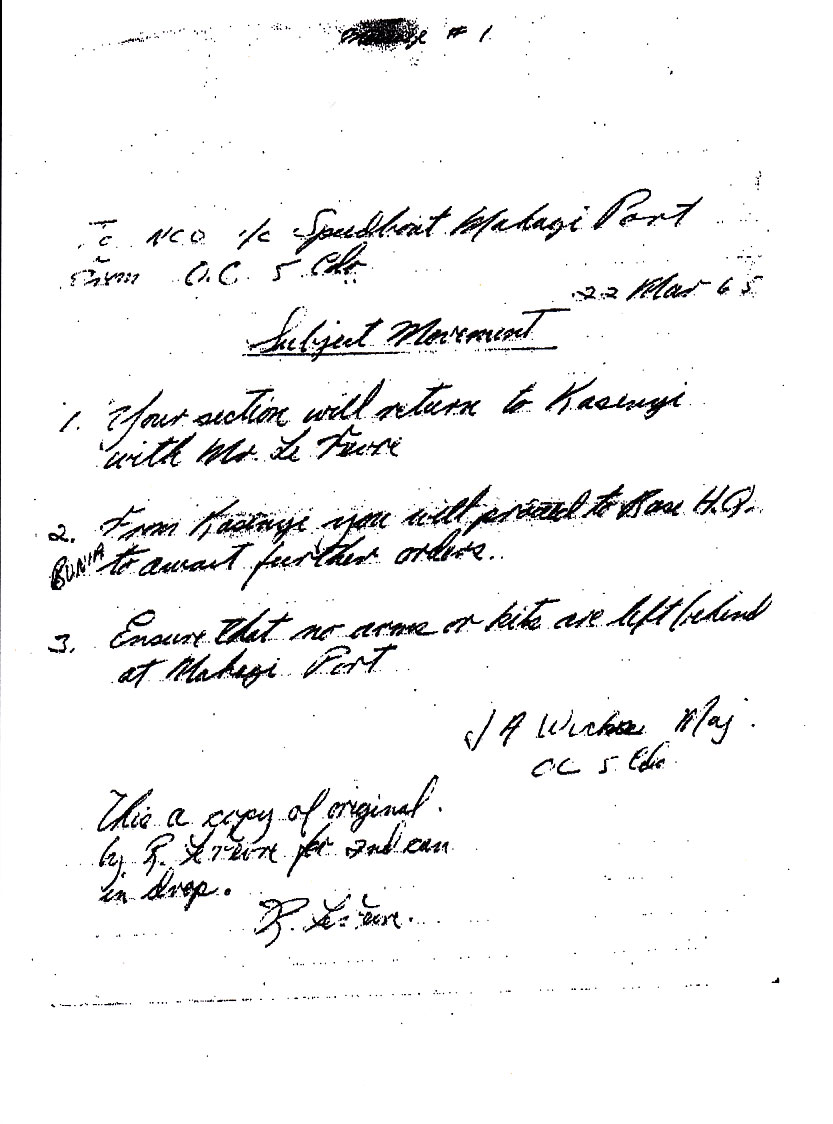 Message # 1
To NCO i/c Speedboat Mahagi Port
From O.C. 5 Cdo.
22 Mar 65
Subject Movement
1. Your section will return to Kasenyi
with Mr. Le Fevre
2. From Kasenyi you will proceed to Base H.Q.
BUNIA to await further orders.
3. Ensure that no arms or kits are left behind
at Mahagi Port
J A Maj.
OC 5 Cdo
This a copy of original.
by R. Le Fevre for 2nd can
in drop.
R. Le Fevre.